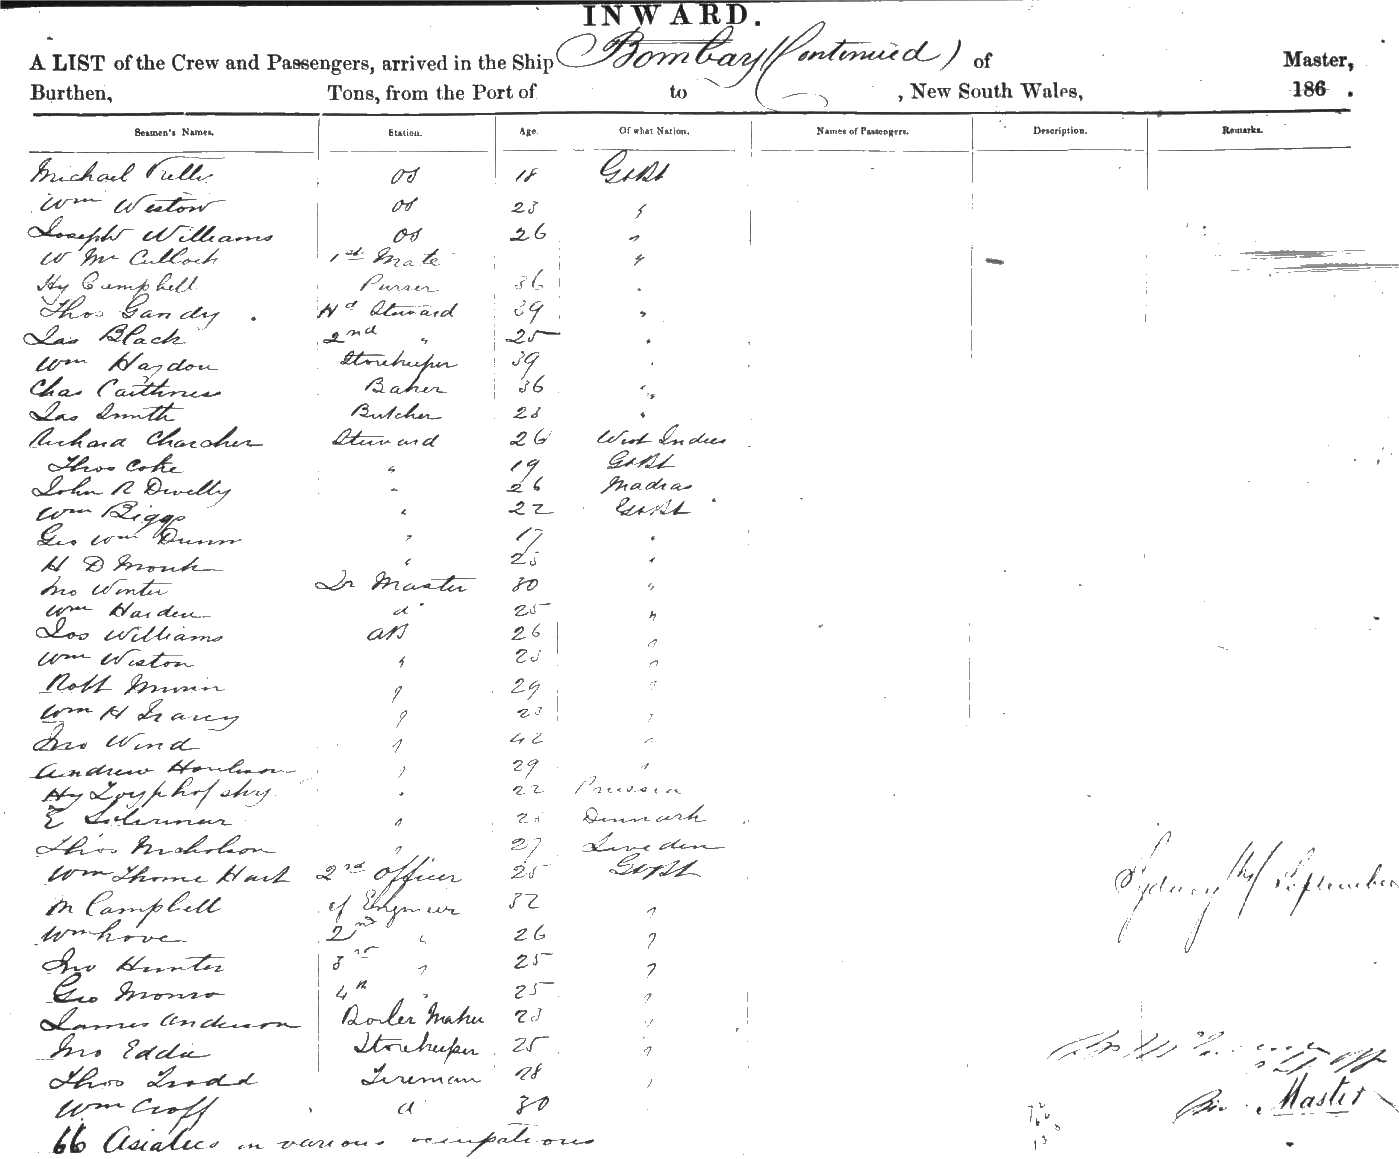 INWARD.
A LIST of the Crew and Passengers, arrived in the Ship Bombay (Continued) of Master,
Burthen, Tons, from the Port of to , New South Wales, 186 .
Seamen's Names. Station. Age. Of what Nation. Names of Passengers. Description. Remarks.
Michael OS 18 Gt Bt
Wm Weston OS 23 "
Joseph Williams OS 26 "
W McCulloch 1st Mate "
Hy Campbell Purser 36 "
Thos Gandy Hd Steward 39 "
Jas Black 2nd " 25 "
Wm Haydon Storekeeper 39 "
Chas Caithness Baker 36 "
Jas Smith Butcher 23 "
Richard Steward 26 West Indies
Thos Coke " 19 Gt Bt
John R Divelly " 26 Madras
Wm Biggs " 22 Gt Bt
Geo Wm Dunn " 17 "
H D Monk " 25 "
Jno Winter Qr Master 30 "
Wm Harden d 25 "
Jos Williams AB 26 "
Wm Weston " 23 "
Robt " 29 "
Wm H " 23 "
Jno Wind " 42 "
Andrew " 29 "
Hy " 22 Prussia
E " Denmark
Thos Nicholson " 27 Sweden
Wm Thorne Hart 2nd Officer 25 Gt Bt
M Campbell Cf Engineer 32 "
Wm Love 2nd " 26 "
Jno Hunter 3rd " 25 "
Geo Monro 4th " 25 "
James Anderson Boiler Maker 23 "
Jno Eddie Storekeeper 25 "
Thos Trodd Fireman 28 "
Wm Croff d 30
66 Asiatics in various occupations
Sydney September
Master